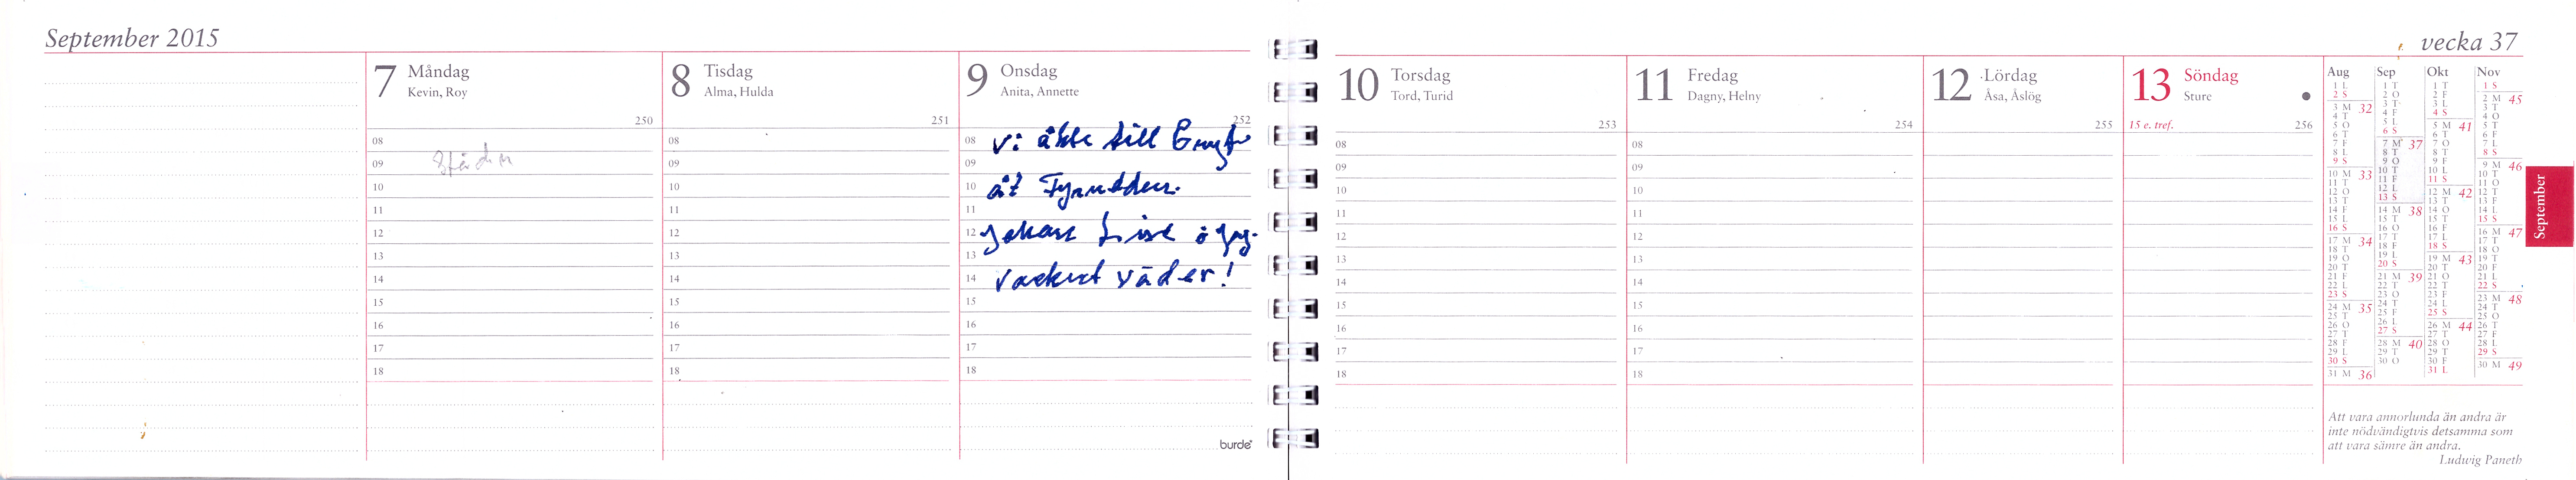 September 2015
7 Måndag
Kevin, Roy
250
08
09
10
11
12
13
14
15
16
17
18
8 Tisdag
Alma, Hulda
251
08
09
10
11
12
13
14
15
16
17
18
9 Onsdag
Anita, Annette
252
08 vi åkte till
09
10 åt
11
12 Johan
13
14 vackert väder!
15
16
17
18
burde
vecka 37
10 Torsdag
Tord, Turid
253
08
09
10
11
12
13
14
15
16
17
18
11 Fredag
Dagny, Helny
254
08
09
10
11
12
13
14
15
16
17
18
12 Lördag
Åsa, Åslög
255
13 Söndag
Sture
15 e. tref. 256
Aug Sep Okt Nov
1 L 1 T 1 T 1 S
2 S 2 O 2 F 2 M 45
3 M 32 3 T 3 L 3 T
4 T 4 F 4 S 4 O
5 O 5 L 5 M 41 5 T
6 T 6 S 6 T 6 F
7 F 7 M 37 7 O 7 L
8 L 8 T 8 T 8 S
9 S 9 O 9 F 9 M 46
10 M 33 10 T 10 L 10 T
11 T 11 F 11 S 11 O
12 O 12 L 12 M 42 12 T
13 T 13 S 13 T 13 F
14 F 14 M 38 14 O 14 L
15 L 15 T 15 T 15 S
16 S 16 O 16 F 16 M 47
17 M 34 17 T 17 L 17 T
18 T 18 F 18 S 18 O
19 O 19 L 19 M 43 19 T
20 T 20 S 20 T 20 F
21 F 21 M 39 21 O 21 L
22 L 22 T 22 T 22 S
23 S 23 O 23 F 23 M 48
24 M 35 24 T 24 L 24 T
25 T 25 F 25 S 25 O
26 O 26 L 26 M 44 26 T
27 T 27 S 27 T 27 F
28 F 28 M 40 28 O 28 L
29 L 29 T 29 T 29 S
30 S 30 O 30 F 30 M 49
31 M 36 31 L
September
Att vara annorlunda än andra är
inte nödvändigtvis detsamma som
att vara sämre än andra.
Ludwig Paneth